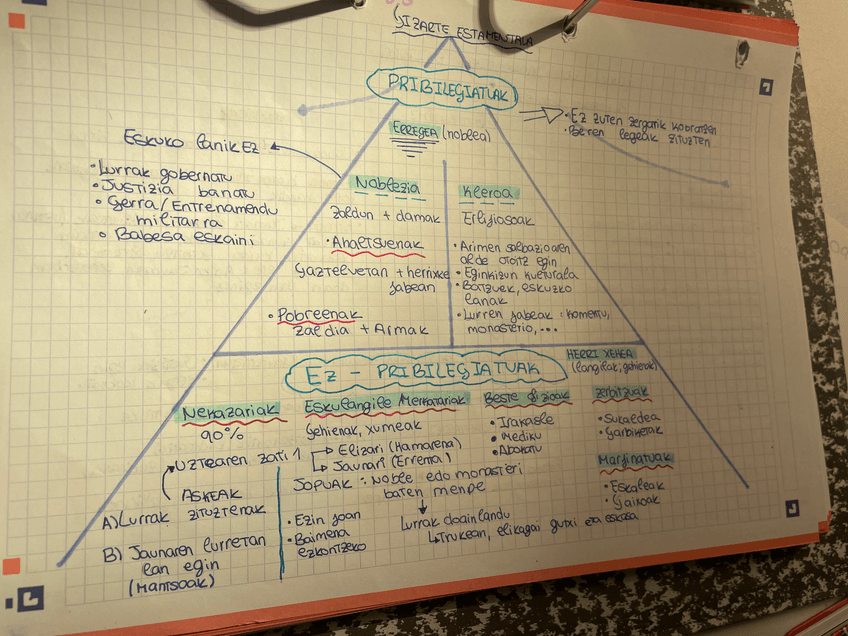 GIZARTE ESTAMENTALA
PRIBILEGIATUAK
• Ez zuten zergarik kobratzen
• Beren legeak zituzten
ERREGEA (noblea)
Eskuko lanik Ez
• Lurrak gobernatu
• Justizia banatu
• Gerra/Entrenamendu
militarra
• Babesa eskaini
Noblezia
Zaldun + damak
• Ahaltsuenak
Gazteluetan + herrixke
jabean
• Pobreenak
zaldia + Armak
Kleroa
Erlijiosoak
• Arimen salbazioaren
alde otoitz egin
• Eginkizun kulturala
• Batzuek, eskuzko
lanak
• Lurren jabeak : komentu,
monasterio, ...
Ez - PRIBILEGIATUAK
HERRI XEHEA
(langileak; gehienak)
Nekazariak
90%
Uztearen zati 1
→ Elizari (Hamarena)
→ Jaunari (Errenta)
ASKEAK
A) Lurrak zituztenak
B) Jaunaren lurretan
lan egin
(Mantsoak)
JOPUAK : Noble edo monasteri
baten menpe
• Ezin joan
• Baimena
ezkontzeko
Lurrak doainlandu
↳ Trukean, elikagai gutxi eta eskasa
Eskulangile Merkatariak
Gehienak, xumeak
Beste ofizioak
• Irakasle
• Mediku
• Abokatu
Zerbitzuak
• Sukaldea
• Garbiketak
Marjinatuak
• Eskaleak
• Gaixoak